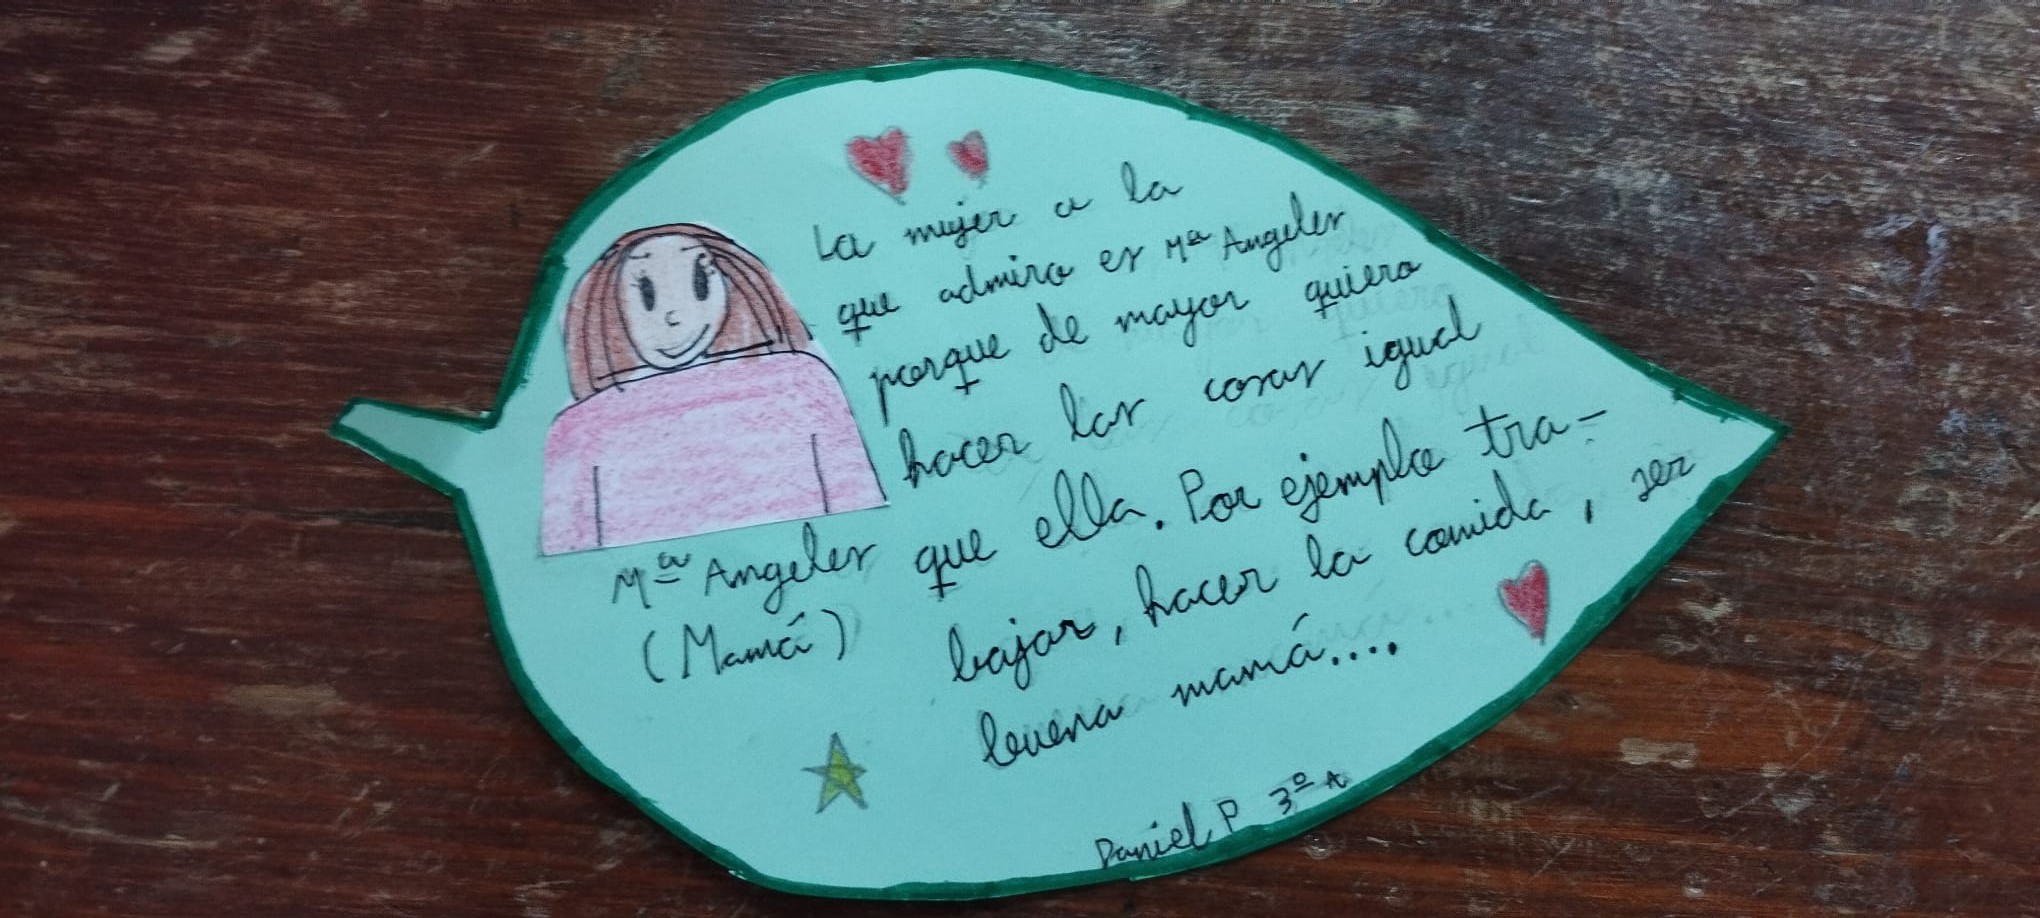 La mujer a la
que admiro es Mª Angeles
porque de mayor quiero
hacer las cosas igual
que ella. Por ejemplo tra-
bajar, hacer la comida, ser
buena mamá....
Mª Angeles
(Mamá)
Daniel P 3º A